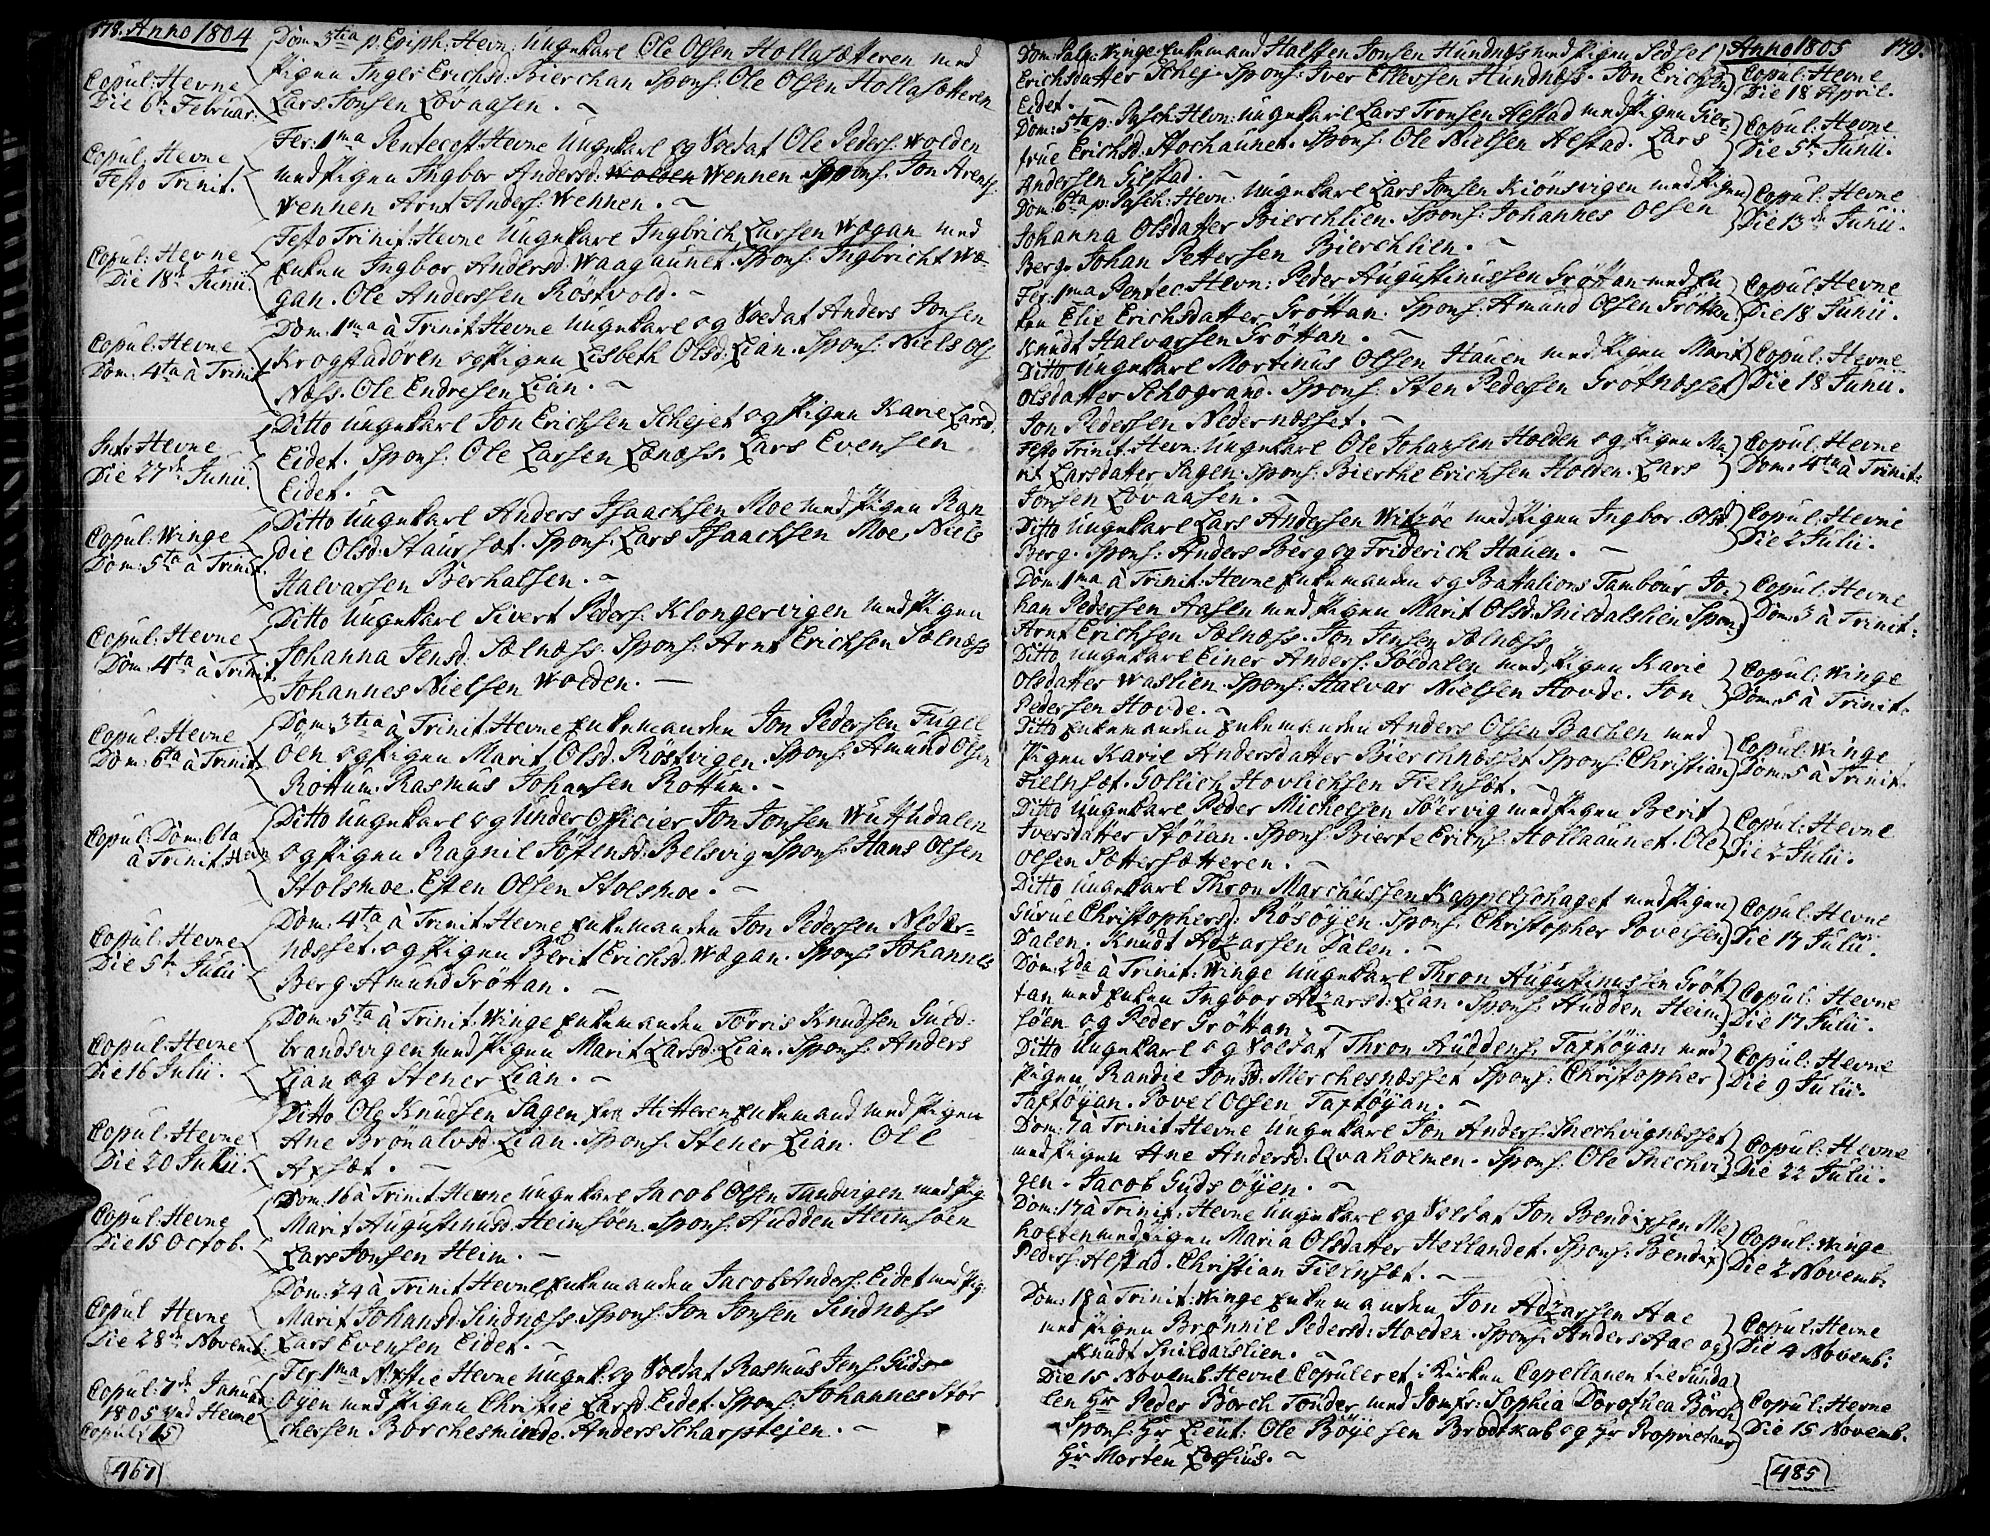 178. Anno 1804
Copul: Hevne
Die 6te Februar:
Dom: 3tia p. Epiph: Hevn: Ungekarl Ole Olsen Hollasætteren med
Pigen Inger Erichsd: Bierchan Spons: Ole Olsen Hollasætteren
Lars Jonsen Løvaasen. ~
Copul: Hevne
Festo Trinit.
Fer: 1ma Pentecost: Hevne Ungekarl og Soldat Ole Peders: Wolden
med Pigen Ingbor Andersd: Wolden Wennen Spons: Jon Arents:
Wennen Arnt Anders: Wennen. ~
Copul: Hevne
Die 18de Junii
Festo Trinit: Hevne Ungekarl Ingbrich Larsen Wogan med
Enken Ingbor Andersd: Waagaunet. Spons: Ingbricht Wo-
gan. Ole Anderssen Röstvold. ~
Copul: Hevne
Dom: 4ta à Trinit
Dom: 1ma à Trinit: Hevne Ungekarl og Soldat Anders Jonsen
Krogstadören og Pigen Lisbeth Olsd: Lian. Spons: Niels Ols
Næss. Ole Endresen Lian. ~
Intr: Hevne
Die 27de Junii.
Ditto Ungekarl Jon Erichsen Schejet og Pigen Karie Larsd:
Eidet. Spons: Ole Larsen Lenæss. Lars Evensen
Eidet. ~
Copul: Winge
Dom: 5ta à Trinit:
Ditto Ungekarl Anders Isaachsen Moe med Pigen Ran
die Olsd: Staursæt. Spons: Lars Isaachsen Moe, Niels
Halvarsen Berhalsen. ~
Copul: Hevne
Dom: 4ta à Trinit.
Ditto Ungekarl Sivert Peders: Klongervigen med Pigen
Johanna Jensd: Sælnæss. Spons: Arnt Erichsen Sælnæss
Johannes Nielsen Wolden. —
Copul: Hevne
Dom: 6ta à Trinit
Dom: 3tia à Trinit: Hevne Enkemanden Jon Pedersen Fugel-
öen og Pigen Marit Olsd: Röstvigen. Spons: Amund Olsen
Rottum. Rasmus Johansen Rottum. ~
Copul: Dom: 6ta
à Trinit: Hevn
Ditto Ungekarl og Under Officier Jon Jonsen Wuthudalen
og Pigen Ragnil Söfrensd: Belsvig. Spons: Hans Olsen
Stolsmoe. Esten Olsen Stolsmoe. ~
Copul: Hevne
Die 5te Julii
Dom: 4ta à Trinit: Hevne Enkemanden Jon Pedersen Neder-
næsset. og Pigen Berit Erichsd: Wægan. Spons: Johannes
Berg. Amund Gröttan. ~
Copul: Hevne
Die 16 Julii.
Dom: 5ta à Trinit. Winge Enkemanden Törris Knudsen Guld-
brandsvigen med Pigen Marit Larsd: Lian. Spons: Anders
Lian og Stener Lian. ~
Copul: Hevne
Die 20 Julii.
Ditto Ole Knudsen Sagen fra Hitteren Enkemand med Pigen
Ane Brönalvsd: Lian. Spons: Stener Lian. Ole
Axsæt. ~
Copul: Hevne
Die 15 Octob.
Dom: 16 à Trinit: Hevne Ungekarl Jacob Olsen Sandvigen med Pig:
Marit Augustinusd: Heimsöen. Spons: Audden Heimsöen
Lars Jonsen Heim. ~
Copul Hevne
Die 28de Novemb.
Dom: 24 à Trinit: Hevne Enkemanden Jacob Anders: Eidet med Pig:
Marit Johansd: Sindnæss. Spons: Jon Jonsen Sindnæss
Lars Evensen Eidet. ~
Copul: 7de Januar
1805 ved Hevne
Copul: 15
Fer: 1ma Nattie Hevne Ungek: og Soldat Rasmus Jens: Gids
öyen med Pigen Christie Larsd: Eidet. Spons: Johannes Stör
chersen Borchesminde. Anders Scharpstejen. ~
467

Anno 1805 179.
Dom: Palm: Winge. Enkemand Halsten Jonsen Hundnæss med Pigen Sedsel
Erichsdatter Schej. Spons: Iver Ellevsen Hundnæss. Jon Erichsen
Eidet. ~
Copul: Hevne
Die 18 April.
Dom: 5ta p: Pasch: Hevn: Ungekarl Lars Tronsen Alstad med Pigen Gier-
true Erichsd: Stochaunet. Spons: Ole Nielsen Alstad. Lars
Andersen Gilstad. ~
Copul: Hevne
Die 5te Junii.
Dom: 6ta p: Pasch: Hevn: Ungekarl Lars Jonsen Kiönsvigen med Pigen
Johanna Olsdatter Bierchlien. Spons: Johannes Olsen
Berg. Johan Pettersen Bierchlien. ~
Copul: Hevne
Die 13de Junii.
Fer: 1ma Pentec: Hevn: Peder Augustinussen Gröttan med En
ken Elie Erichsdatter Gröttan. Spons: Amund Olsen Gröttan
Knudt Halvarsen Gröttan. ~
Copul: Hevne
Die 18 Junii.
Ditto Ungekarl Mortinus Olsen Hauen med Pigen Marit
Olsdatter Schogrand. Spons: Sten Pedersen Grötnæsset
Jon Pedersen Nedernæsset. ~
Copul: Hevne
Die 18 Junii.
Festo Trinit: Hevn: Ungekarl Ole Johansen Holden og Pigen Ma
rit Larsdatter Sagen. Spons: Bierthe Erichsen Holden. Lars
Jonsen Løvaasen. ~
Copul: Hevne
Dom: 4ta à Trinit:
Ditto Ungekarl Lars Andersen Witzöe med Pigen Ingbor Olsd
Berg. Spons: Anders Berg og Friderich Hauen. ~
Copul: Hevne
Die 2 Julii.
Dom: 1ma à Trinit: Hevne Enkemanden og Battalions Tambour Jo-
han Pedersen Aasen med Pigen Marit Olsd: Snildalslien Spon:
Arnt Erichsen Sælnæss. Jon Jensen Sælnæss
Copul: Hevne
Dom: 3 à Trinit:
Ditto Ungekarl Einer Anders: Södalen med Pigen Karie
Olsdatter Waslien. Spons: Halvar Nielsen Hovde. Jon
Pedersen Hovde. ~
Copul: Winge
Dom: 5 à Trinit:
Ditto Enkemanden Enkemanden Anders Olsen Bachen med
Pigen Karie Andersdatter Bierchnesset Spons: Christian
Fielnsæt. Gollich Hovlichsen Fielnsæt. ~
Copul: Winge
Dom: 5 à Trinit:
Ditto Ungekarl Peder Michelsen Söervig med Pigen Berit
Iversdatter Stölan. Spons: Bierte Erichs: Hollaaunet. Ole
Olsen Sættersætteren. ~
Copul: Hevne
Die 2 Julii.
Ditto Ungekarl Thron Marchussen Kappelschaget med Pigen
Gurue Christophersd: Rösöyen. Spons: Christopher Povelsen
Dalen. Knudt Adzarsen Dalen. ~
Copul: Hevne
Die 17 Julii.
Dom: 2da à Trinit: Winge Ungekarl Thron Augustinussen Gröt
tan med Enken Ingbor Adzarsd: Lian. Spons: Audden Heim
söen og Peder Gröttan ~
Copul: Hevne
Die 17 Julii.
Ditto Ungekarl og Soldat Thron Auddens: Taftöyan med
Pigen Randie Jonsd: Merchesnæsset Spons: Christopher
Taftöyan. Povel Olsen Taftöyan. ~
Copul: Hevne
Die 9 Julii.
Dom: 7 à Trinit: Hevne Ungekarl Jon Anders: Snechvignæsset
med Pigen Ane Andersd: Qvaholmen. Spons: Ole Snechvi
gen. Jacob Gudsöyen. ~
Copul: Hevne
Die 22 Julii.
Dom: 17 à Trinit: Hevne Ungekarl og Soldat Jon Bendixsen Me
hoelen med Pigen Maria Olsdatter Hellandet. Spons: Bendix
Peders: Alstad. Christian Fielnsæt. ~
Copul: Winge
Die 2 Novemb.
Dom: 18 à Trinit: Winge Enkemanden Jon Adzarsen Aae
med Pigen Brönnil Pedersd: Hoeden. Spons: Anders Aae og
Knudt Snildalslien. ~
Copul: Hevne
Die 4 Novemb:
Die 15 Novemb: Hevne Copuleret i Kirken Capellanen til Sunda
len Hr Peder Börch Tönder med Jomfr: Sophia Dorothea Börch
Spons: Hr Lieut: Ole Böyesen Brodtkorb og Hr Proprietair
Hr Morten Lossius. ~
Copul: Hevne
Die 15 Novemb.
485